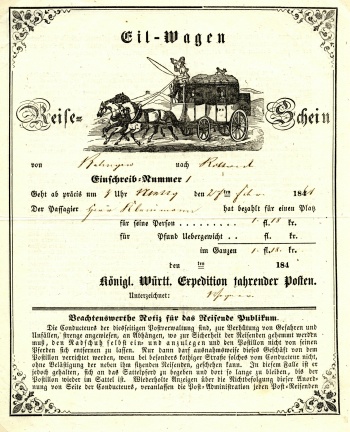 Eil-Wagen
Reise-Schein
von Balingen nach Rottweil
Einschreib-Nummer 1
Geht ab präcis um Uhr den 27 ten 184
Der Passagier hat bezahlt für einen Platz
für seine Person 1. fl. 18 kr.
für Pfund Uebergewicht fl. kr.
im Ganzen 1. fl. 18. kr.
den ten 184
Königl. Württ. Expedition fahrender Posten.
Unterzeichnet:
Beachtenswerthe Notiz für das Reisende Publikum.
Die Conducteurs der diesseitigen Postverwaltung sind, zur Verhütung von Gefahren und
Unfällen, strenge angewiesen, an Abhängen, wo zur Sicherheit der Reisenden gehemmt werden
muß, den Radschuh selbst ein- und anzulegen und den Postillon nicht von seinen
Pferden sich entfernen zu lassen. Nur dann darf ausnahmsweise dieses Geschäft von dem
Postillon verrichtet werden, wenn bei besonders kothiger Straße solches vom Conducteur nicht,
ohne Belästigung der neben ihm sitzenden Reisenden, geschehen kann. In diesem Falle ist er
jedoch gehalten, sich an das Sattelpferd zu begeben und dort so lange zu bleiben, bis der
Postillon wieder im Sattel ist. Wiederholte Anzeigen über die Nichtbefolgung dieser Anord-
nung von Seite der Conducteurs, veranlassen die Post-Administration jeden Post-Reisenden